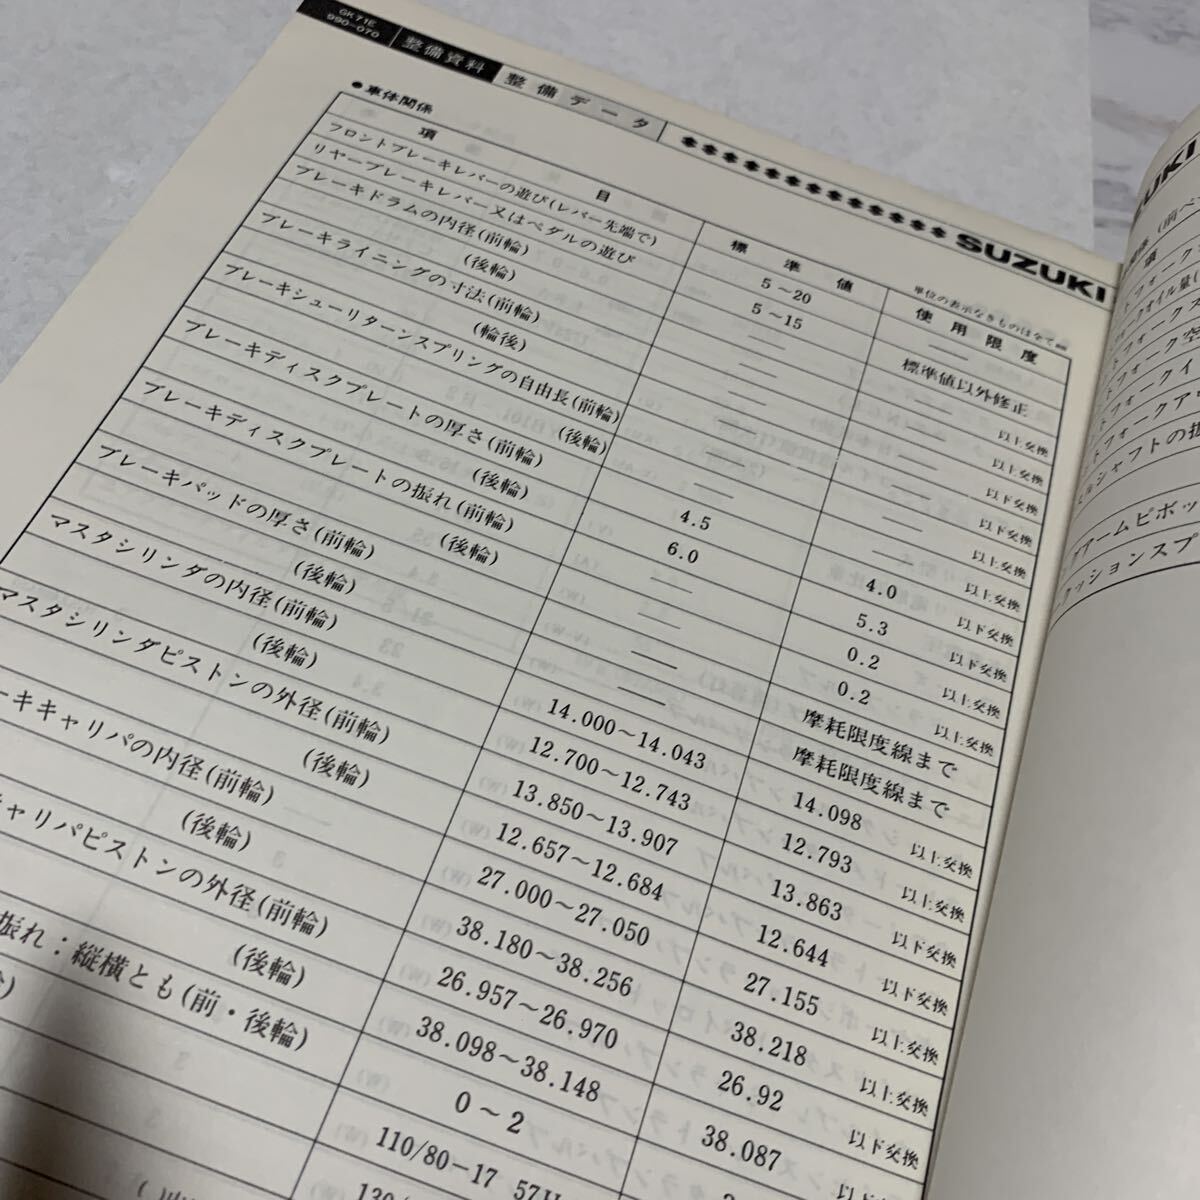 GK71E
990-070
整備資料 整備データ
SUZUKI
●車体関係
単位の表示なきものは全て㎜
項 目 標準値 使用限度
フロントブレーキレバーの遊び(レバー先端で) 5〜20 ——
リヤーブレーキレバー又はペダルの遊び 5〜15 標準値以外修正
ブレーキドラムの内径(前輪) —— —— 以上交換
(後輪) —— —— 以上交換
ブレーキライニングの寸法(前輪) —— —— 以下交換
(輪後) —— —— 以下交換
ブレーキシューリターンスプリングの自由長(前輪) —— —— 以上交換
(後輪) —— —— 以上交換
ブレーキディスクプレートの厚さ(前輪) 4.5 4.0 以下交換
(後輪) 6.0 5.3 以下交換
ブレーキディスクプレートの振れ(前輪) —— 0.2 以上交換
(後輪) —— 0.2 以上交換
ブレーキパッドの厚さ(前輪) —— 摩耗限度線まで
(後輪) —— 摩耗限度線まで
マスタシリンダの内径(前輪) 14.000〜14.043 14.098 以上交換
(後輪) 12.700〜12.743 12.793 以上交換
マスタシリンダピストンの外径(前輪) 13.850〜13.907 13.863 以下交換
(後輪) 12.657〜12.684 12.644 以下交換
ーキキャリパの内径(前輪) 27.000〜27.050 27.155 以上交換
(後輪) 38.180〜38.256 38.218 以上交換
キャリパピストンの外径(前輪) 26.957〜26.970 26.92 以下交換
(後輪) 38.098〜38.148 38.087 以下交換
振れ：縦横とも(前・後輪) 0〜2
110/80−17 57H
130/
UZUKI
(前ペ
項
トフォーク
トフォーク
トフォーク空
トフォークイ
トフォークア
ルシャフトの振
グアームピボッ
クッションスプ